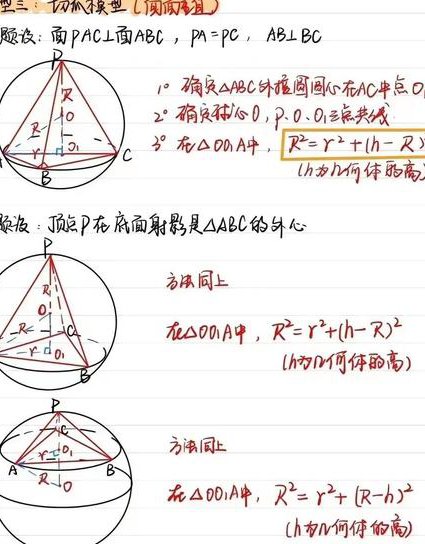 型三：切瓜模型（侧面垂直）
题设：面PAC⊥面ABC，PA=PC，AB⊥BC
1° 确定△ABC外接圆圆心在AC中点O
2° 确定球心O，P.O.O₁三点共线
3° 在△OO₁A中，R²=r²+(h-R)
(h为几何体的高)
P
R
O
R
r
O₁
A
B
C
题设：顶点P在底面射影是△ABC的外心
方法同上
在△OO₁A中，R²=r²+(h-R)²
(h为几何体的高)
P
R
O
R
C
r
O₁
B
方法同上
在△OO₁A中，R²=r²+(R-h)²
(h为几何体的高)
P
C
O₁
r
A
B
R
O